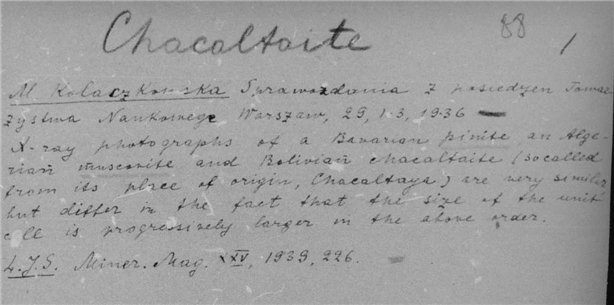 Chacaltaite
88
1
M. Kolaczkowska Sprawozdania z posiedzen Towar
zystwa Naukowege Warszaw, 29, 1-3, 1936 —
X-ray photographs of a Bavarian pinite an Alge
rian muscovite and Bolivian chacaltaite (socalled
from its place of origin, Chacaltaya) are very similar
but differ in the fact that the size of the unit
cell is progressively larger in the above order.
L.J.S. Miner. Mag. XXV, 1939, 226.